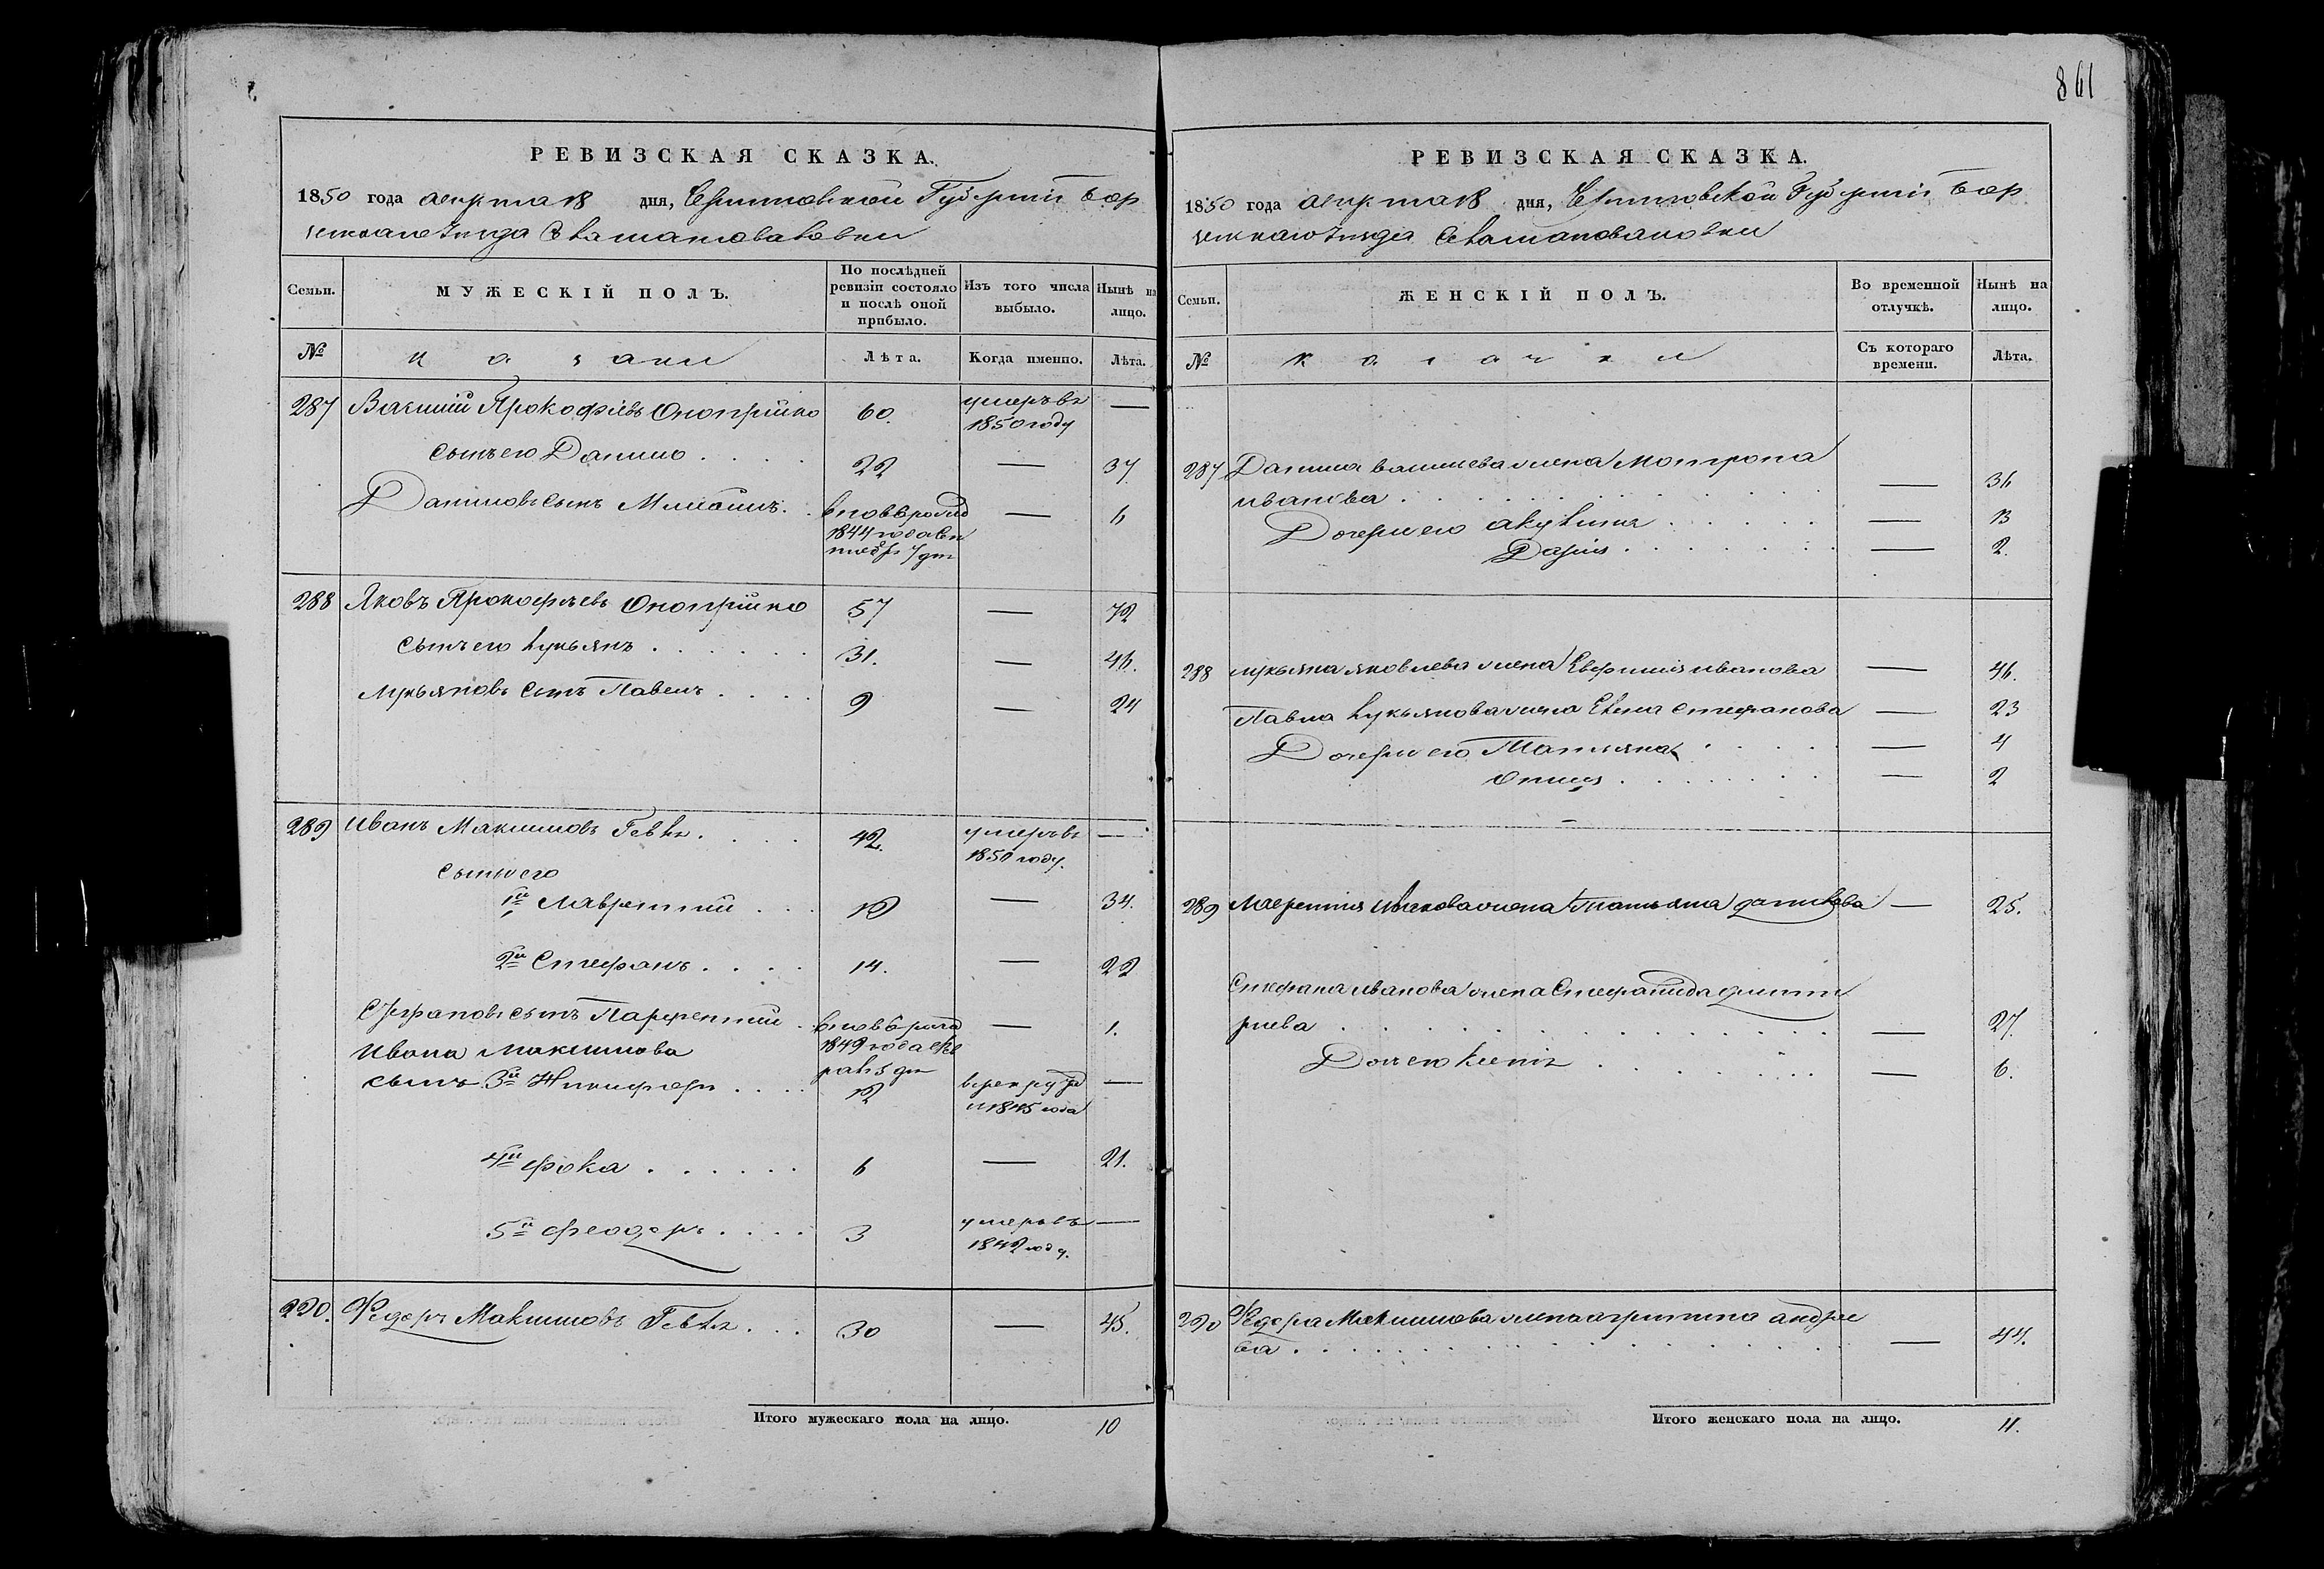 861
РЕВИЗСКАЯ СКАЗКА.
1850 года августа 18 дня, Черниговской Губерніи Бор
зенскаго Уезда
Семьи.
МУЖЕСКІЙ ПОЛЪ.
По послѣдней ревизіи состояло и послѣ оной прибыло.
Изъ того числа выбыло.
Нынѣ на лицо.
№
казаки
Лѣта.
Когда именно.
Лѣта.
287 Василий Прокофіевъ Оноприйко 60. умеръ въ 1850 году —
сынъ его Данило . . . . 22 — 37
Даниловъ сынъ . . 1844 года — 6
288 Яковъ Прокофьевъ Оноприйко 57 — 72
Сынъ его Лукьянъ . . . . . . 31. — 46.
Лукьяновъ сынъ Павелъ . . . . 9 — 24
289 Иванъ Максимовъ Гевка . . . . 42. умеръ въ 1850 году. —
сыны его
1й Лаврентий . . . — 34.
2й Стефанъ . . . . 14. — 22
Стефановъ сынъ Парфентий . вновь рожд 1849 года фев — 1.
Ивана Максимова
сынъ 3й Никифоръ . . . . 12 в рекруты 1845 года —
4й Фока . . . . . . 6 — 21.
5й Феодоръ . . . . 3 умеръ въ 1842 году. —
290. Федоръ Максимовъ Гевка . . . 30 — 45.
Итого мужескаго пола на лицо. 10
РЕВИЗСКАЯ СКАЗКА.
1850 года августа 18 дня, Черниговской Губерніи Бор
зенскаго Уезда
Семьи.
ЖЕНСКІЙ ПОЛЪ.
Во временной отлучкѣ.
Нынѣ на лицо.
№
казачки
Съ котораго времени.
Лѣта.
287 Данила Васильева жена Мотрона
Иванова . . . . . . . . — 36
Дочери его Акулина . . . . . — 13
Дарія . . . . . . . — 2.
288 Лукьяна Яковлева жена Евфимія Иванова — 46.
Павла Лукьянова жена Елена Стефанова — 23
Дочери его Татьяна . . . . — 4
. . . . . . . — 2
289 Лаврентія Иванова жена Татьяна Данилова — 25.
Стефана Иванова жена Стефанида Дмит
риева . . . . . . . . — 27.
Дочь его Ксенія . . . . . . . — 6.
290 Федора Максимова жена Агрипина Андрее
ва . . . . . . . . . — 44.
Итого женскаго пола на лицо. 11.